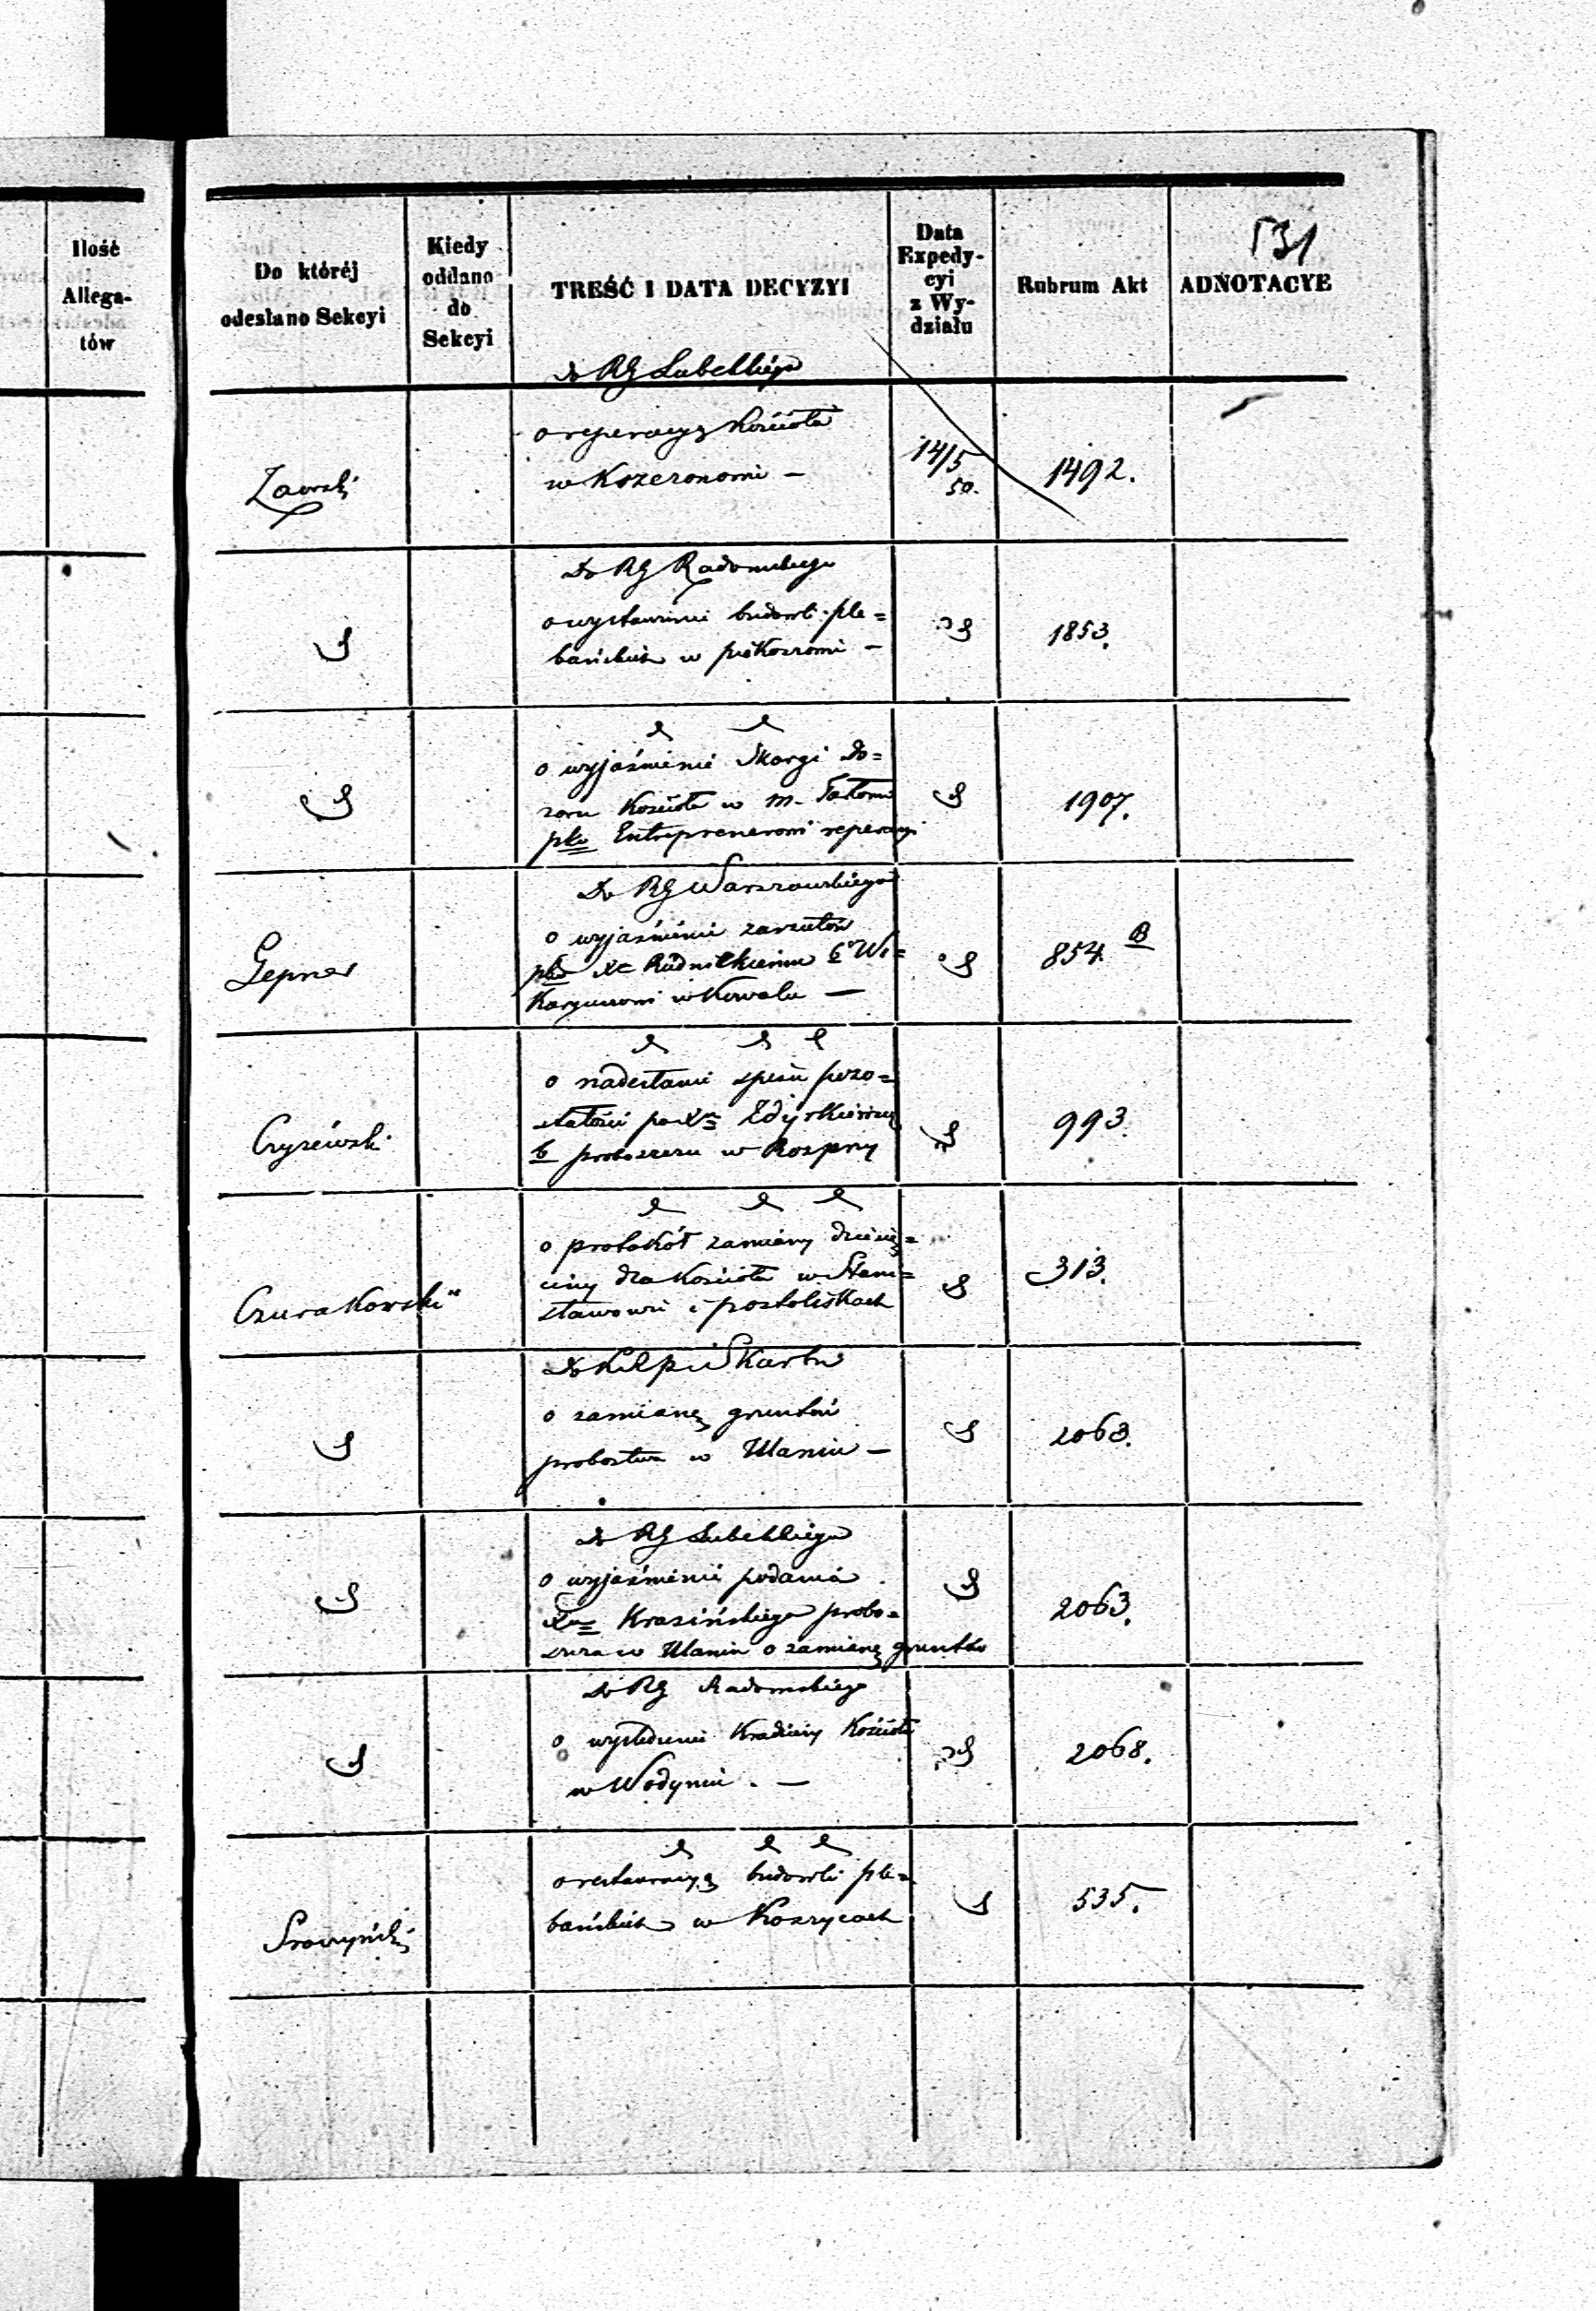 Ilość
Allega-
tów
Do któréj
odesłano Sekcyi
Kiedy
oddano
do
Sekcyi
TREŚĆ I DATA DECYZYI
Data
Expedy-
cyi
z Wy-
działu
Rubrum Akt
ADNOTACYE
131
do RG Lubelskiego
o reperacyą Kościoła
w
14/5
50.
1492.
Do RG Radomskiego
o wystawienie budowli ple=
bańskich w
1853.
o wyjaśnienie Skargi Do=
zoru Kościoła w m.
pko Entreprenerowi reperacyi
1907.
Gepner
Do RG Warszawskiego
o wyjaśnienie zarzutów
pko Xe b Wi=
karyuszowi w Kowalu —
854. B
Czyżewski
o nadesłanie spisu pozo=
stałości po Xe
b proboszczu w Rozprzy
993.
Czurakowski
o protokół zamiany dziesię=
ciny dla Kościoła w Stani=
sławowie i postoliskach
313.
Do Skarbu
o zamianę gruntów
probostwa w Ulaniu —
2063.
do RG Lubelskiego
o wyjaśnienie podania
Xa Krasińskiego probo=
szcza w Ulaniu o zamianę gruntów
2063.
Do RG Radomskiego
o wyśledzenie Kradzieży Kościoła
w Wodyniu. —
2068.
o restauracyą budowli ple=
bańskich w Koszycach
535.